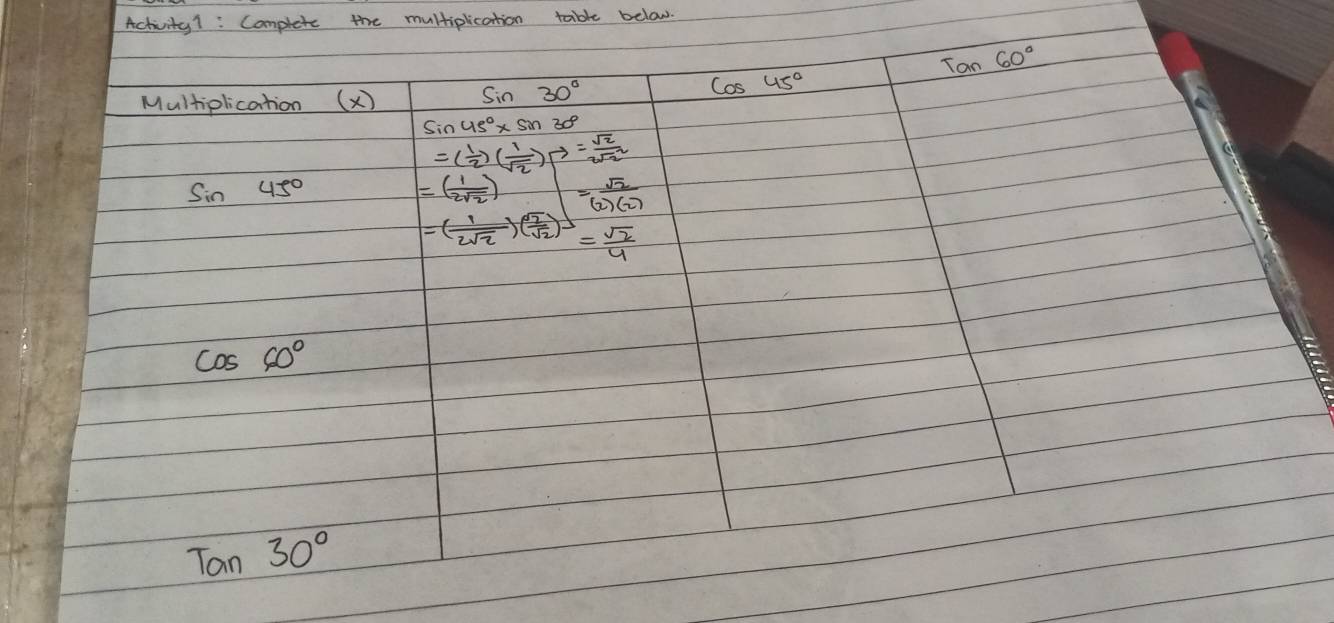 Activity 1 : Complete the multiplication table below.
Multiplication (x) Sin 30° Cos 45° Tan 60°
Sin 45°
sin 45° x sin 30°
= (1/2)(1/√2)
= (1/2√2)
= (1/2√2)(√2/√2)
→ = √2/2√2²
= √2/(2)(2)
= √2/4
Cos 60°
Tan 30°